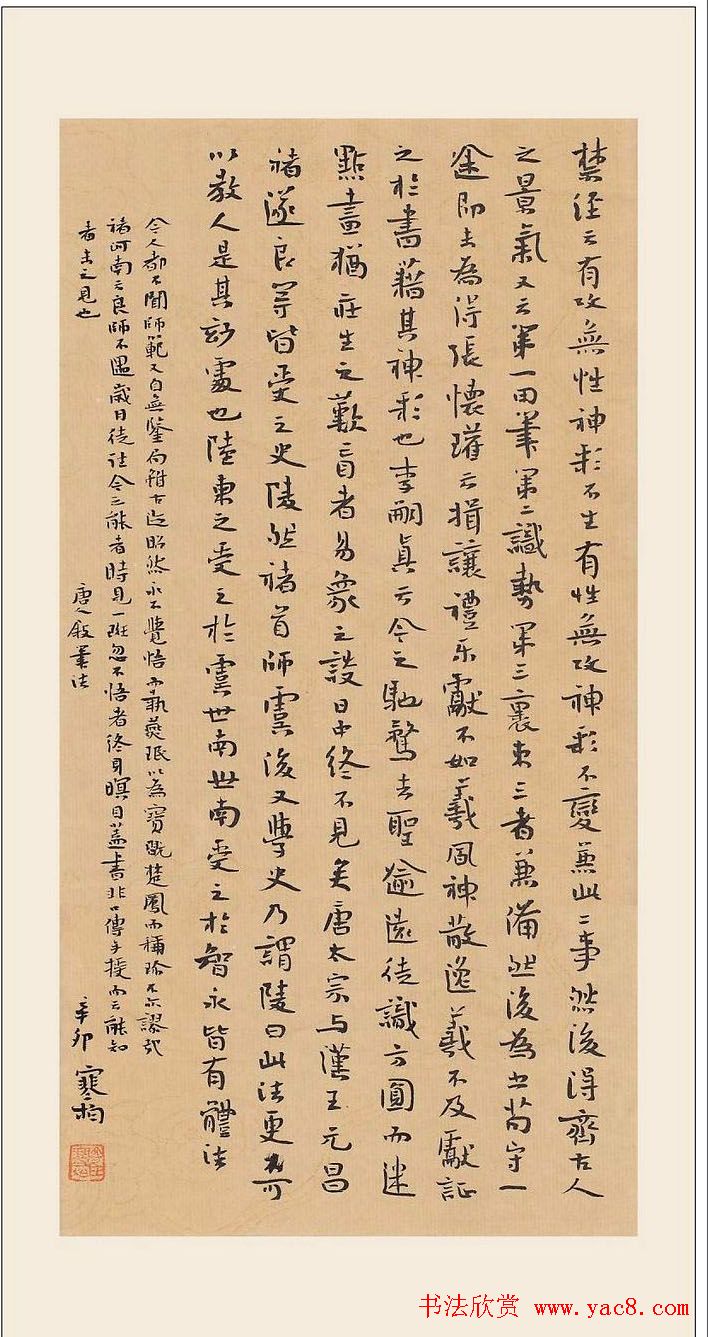 禁経云有攻無性神彩不生有性無攻神彩不變兼此二事然後得齊古人
之景氣又云第一用筆第二識勢第三裹束三者兼備然後為書苟守一
途即未為得張懷瓘云揖讓禮樂獻不如羲風神散逸羲不及獻証
之於書藉其神彩也李嗣真云今之馳騖去聖逾遠徒識方圓而迷
點畫猶莊生之歎盲者易象之談日中終不見矣唐太宗与漢王元昌
褚遂良等皆受之史陵然褚首師虞後又學史乃謂陵曰此法更不可
以教人是其妙處也陸柬之受之於虞世南世南受之於智永皆有體法
今人都不聞師範又自無鑒局雖古迹昭然永不覺悟而執燕珉以為寶翫楚鳳而稱珍不亦謬哉
褚河南云良師不遇歲月徒往今之能者時見一斑忽不悟者終身瞑目蓋書非口傳手授而云能知
者未之見也
唐人敘筆法
辛卯 寒柏
书法欣赏 www.yac8.com